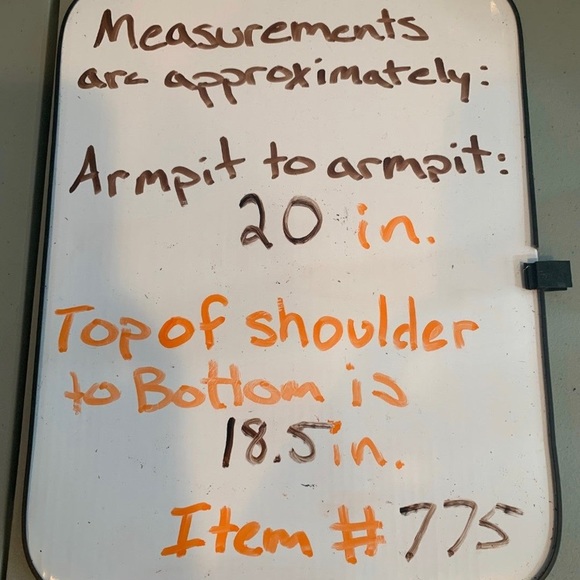 Measurements
are approximately:
Armpit to armpit:
20 in.
Top of shoulder
to Bottom is
18.5 in.
Item # 775